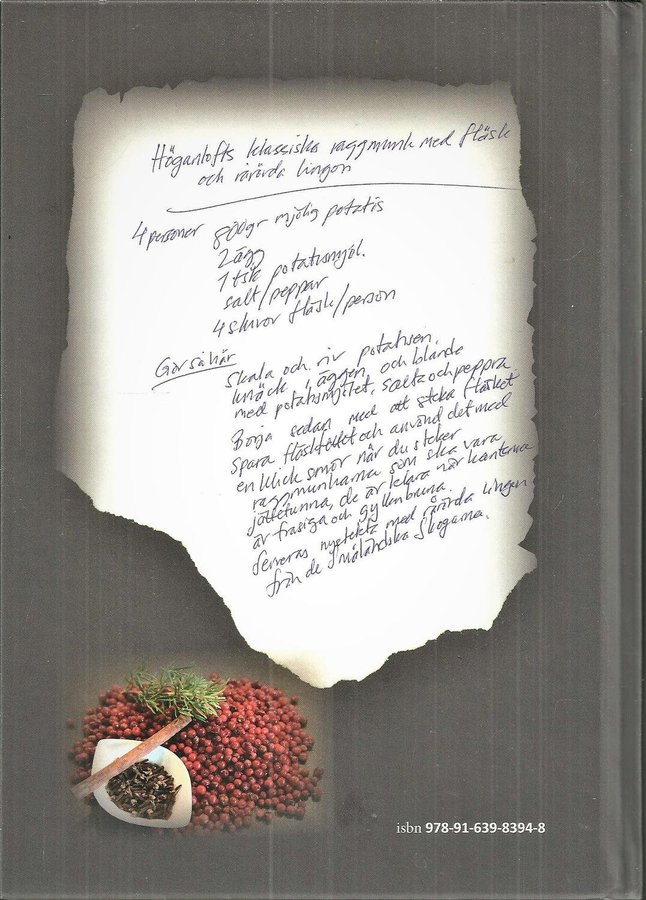 Höganlofts klassiska raggmunk med fläsk
och rårörda lingon
4 personer 800gr mjölig potatis
2 ägg
1 tsk potatismjöl.
salt/peppar
4 skivor fläsk/person
Gör så här
Skala och riv potatisen.
knäck i äggen och blanda
med potatismjölet, salta och peppra
Börja sedan med att steka fläsket
Spara fläskfettet och använd det med
en klick smör när du steker
raggmunkarna som ska vara
jättetunna, de är klara när kanterna
är frasiga och gyllenbruna.
Serveras nystekta med rårörda lingon
från de småländska skogarna.
isbn 978-91-639-8394-8